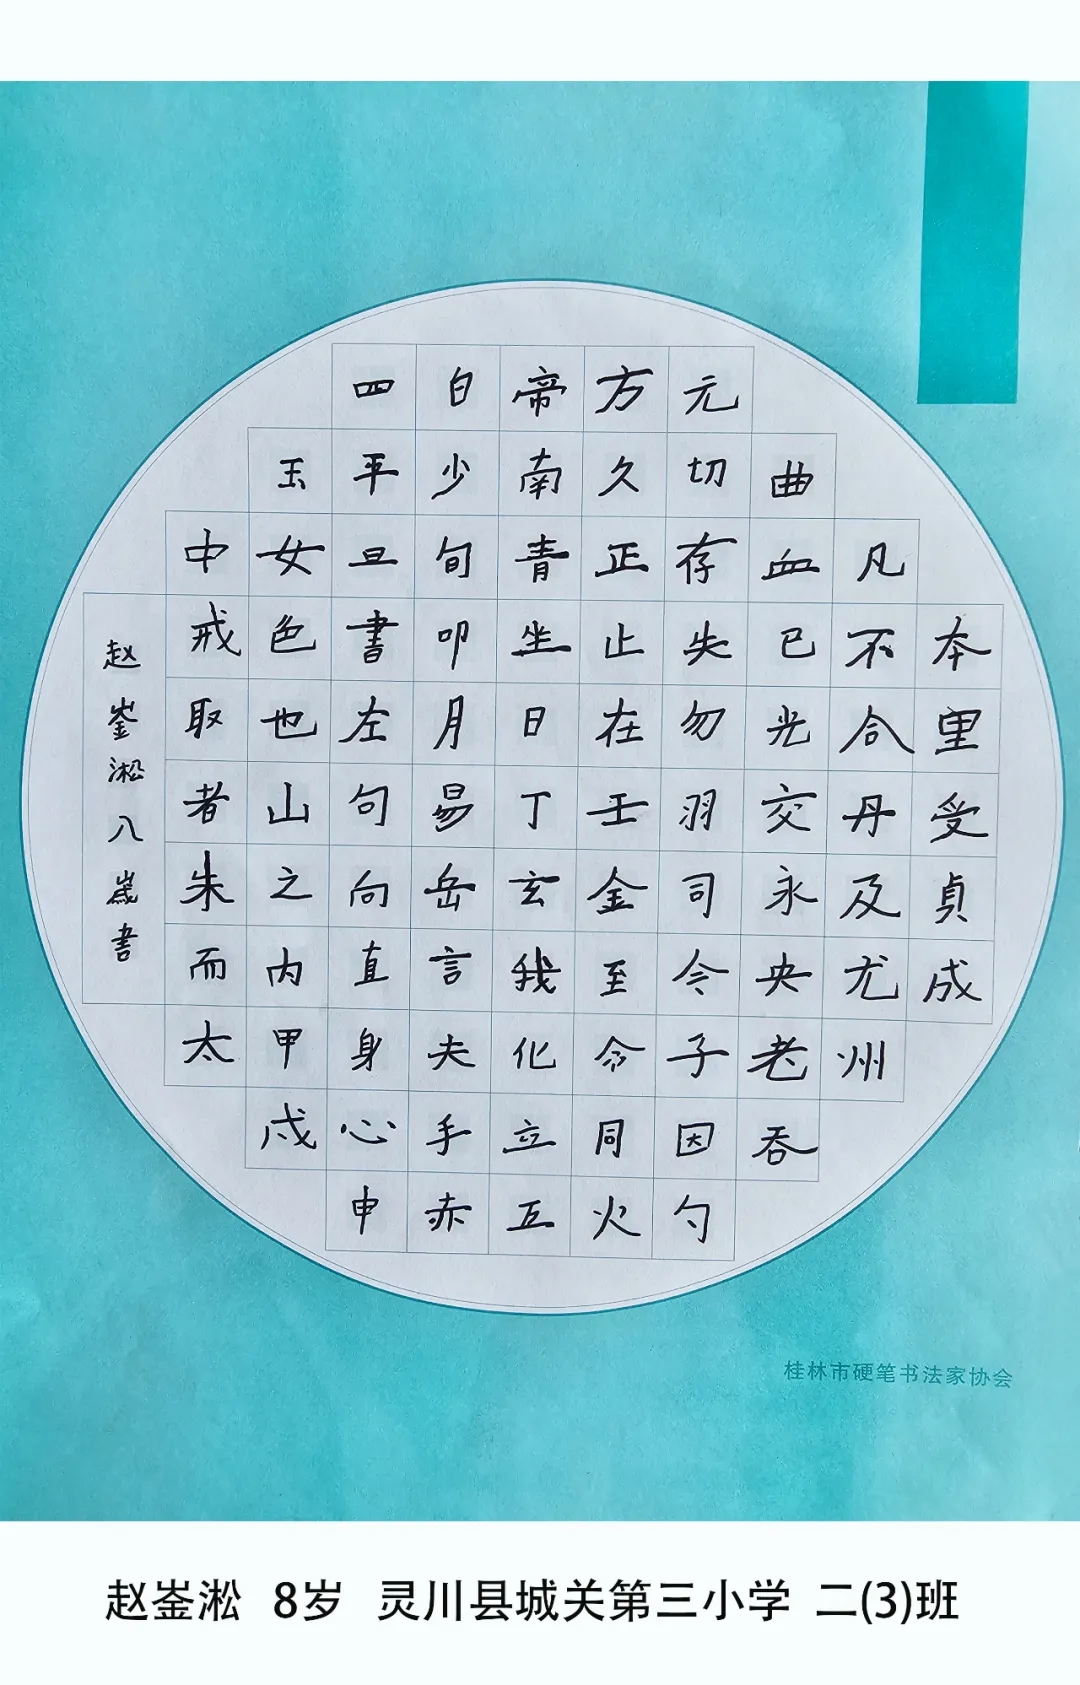 本里受貞成
凡不合丹及尤州
曲血已光交永央老吞
元切存失勿羽司令子因勺
方久正止在壬金至令同火
帝南青坐日丁玄我化立互
白少旬叩月易岳言夫手赤
四平旦書左句向直身心申
玉女色也山之内甲戍
中戒取者朱而太
赵崟淞八歲書
桂林市硬笔书法家协会
赵崟淞 8岁 灵川县城关第三小学 二(3)班